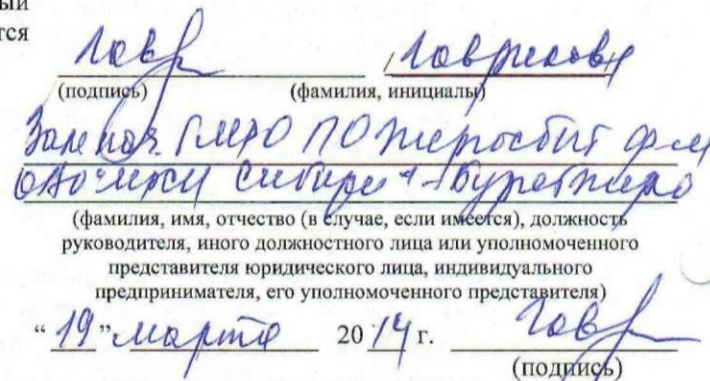 ый
тся
Гавр Гаврилова
(подпись) (фамилия, инициалы)
Зам нач. ПО Энергосбыт ф-л
ОАО МРСК Сибири - Бурятэнерго
(фамилия, имя, отчество (в случае, если имеется), должность
руководителя, иного должностного лица или уполномоченного
представителя юридического лица, индивидуального
предпринимателя, его уполномоченного представителя)
“ 19 ” марта 20 14 г. Гавр
(подпись)